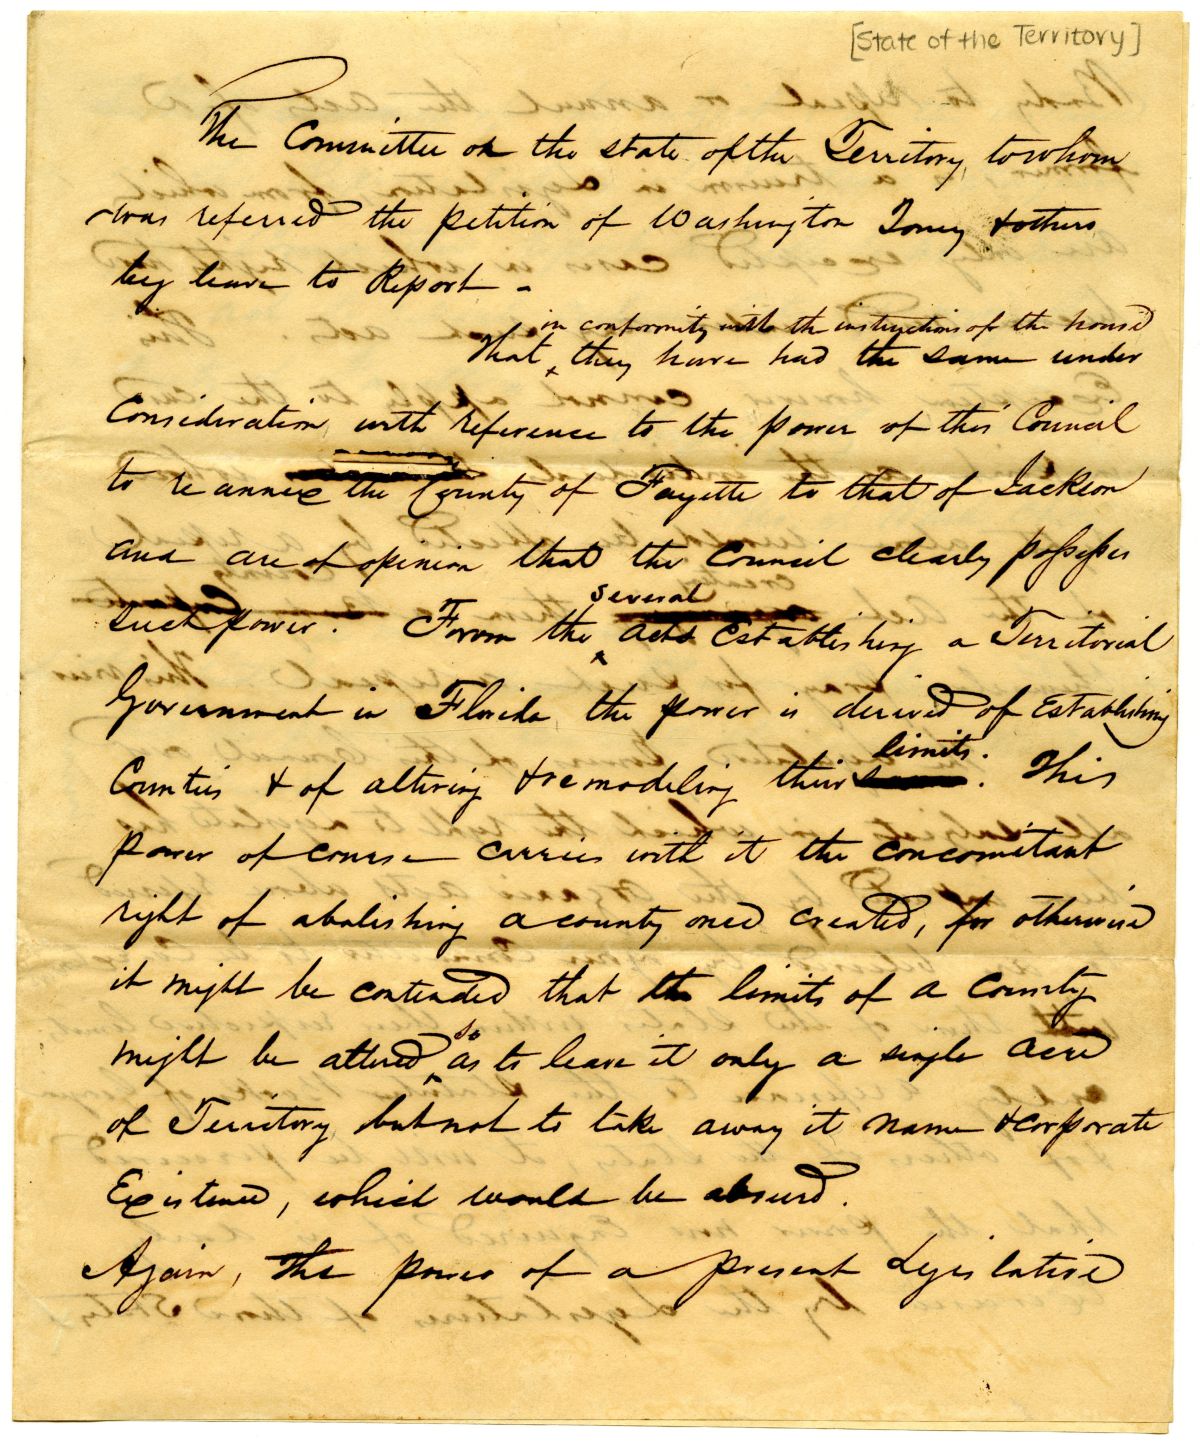 [State of the Territory]
The Committee on the state of the Territory, to whom
was referred the petition of Washington Toney & others
beg leave to Report -
in conformity with the instructions of the house
That they have had the same under
Consideration with reference to the power of this Council
to re annex the County of Fayette to that of Jackson
and are of opinion that the Council clearly possesses
such power. From the
several
acts Establishing a Territorial
Government in Florida the power is derived of Establishing
Counties & of altering & remodeling their
limits. This
power of course carries with it the concomitant
right of abolishing a county once created, for otherwise
it might be contended that the limits of a County
might be altered so as to leave it only a single acre
of Territory but not to take away it name & corporate
Existence, which would be absurd.
Again, the power of a present Legislative